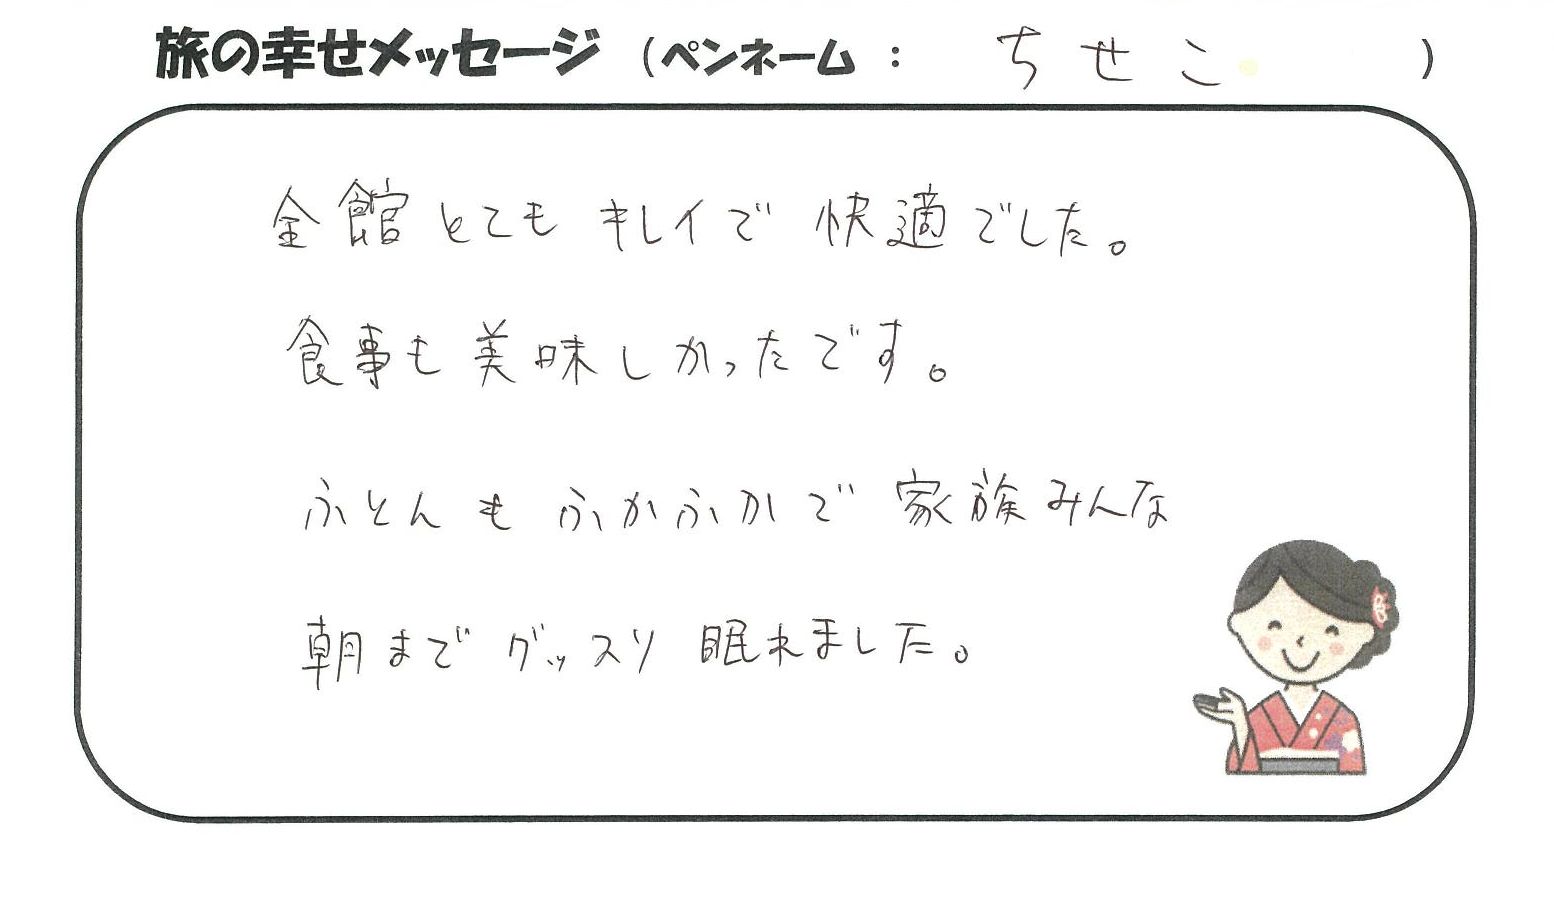 旅の幸せメッセージ (ペンネーム : ちせこ )
全館とてもキレイで快適でした。
食事も美味しかったです。
ふとんもふかふかで家族みんな
朝までグッスリ眠れました。